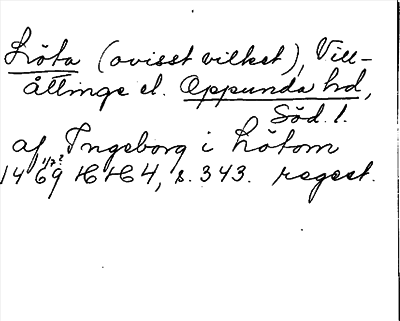 Löta (ovisst vilket), Vill-
åttinge el. Oppunda hd,
Söd. l.
af Ingeborg i Lötom
1469 1/7? HH 4, s. 343. regest.